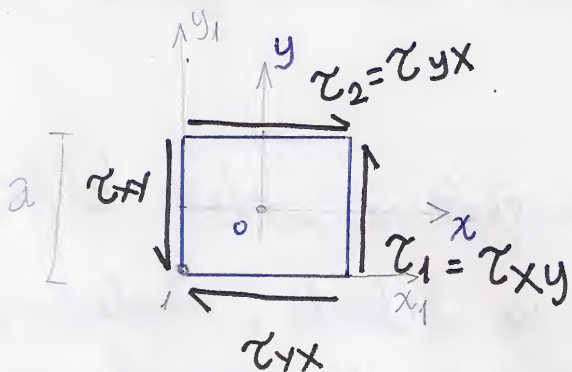 y₁
y
τ₂ = τyx
a
τxy
o
x
τ₁ = τxy
1
x₁
τyx